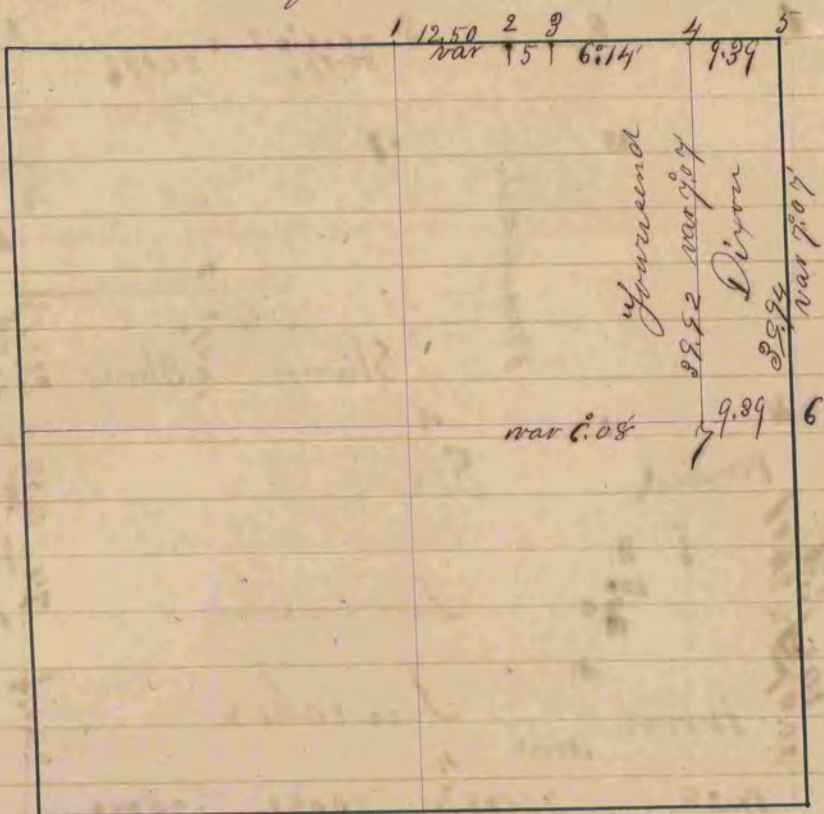 1 12.50 2 3 4 5
var 5 6°14' 9.39
Townsend
39.92 var 7°07'
Dixon
39.94
var 7°07'
var 6°08' 7 9.39 6